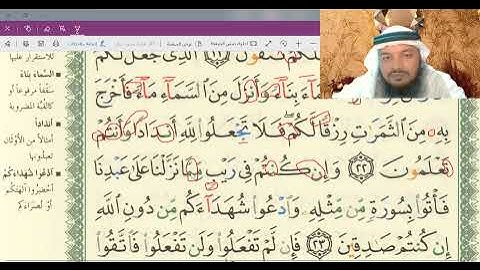 تَتَّقُونَ ٢١ ٱلَّذِى جَعَلَ لَكُمُ
بِنَآءً وَأَنزَلَ مِنَ ٱلسَّمَآءِ مَآءً فَأَخْرَجَ
بِهِۦ مِنَ ٱلثَّمَرَٰتِ رِزْقًا لَّكُمْ ۖ فَلَا تَجْعَلُوا۟ لِلَّهِ أَندَادًا وَأَنتُمْ
تَعْلَمُونَ ٢٢ وَإِن كُنتُمْ فِى رَيْبٍ مِّمَّا نَزَّلْنَا عَلَىٰ عَبْدِنَا
فَأْتُوا۟ بِسُورَةٍ مِّن مِّثْلِهِۦ وَٱدْعُوا۟ شُهَدَآءَكُم مِّن دُونِ ٱللَّهِ
إِن كُنتُمْ صَٰدِقِينَ ٢٣ فَإِن لَّمْ تَفْعَلُوا۟ وَلَن تَفْعَلُوا۟ فَٱتَّقُوا۟
للاستقرار عليها
السَّماءَ بناءً
سقفاً مرفوعاً أو
كالقبة المضروبة
أنداداً
أمثالاً من الأوثان
تعبدونها
ادعوا شهداءكم
أحضروا آلهتكم
أو نصراءكم